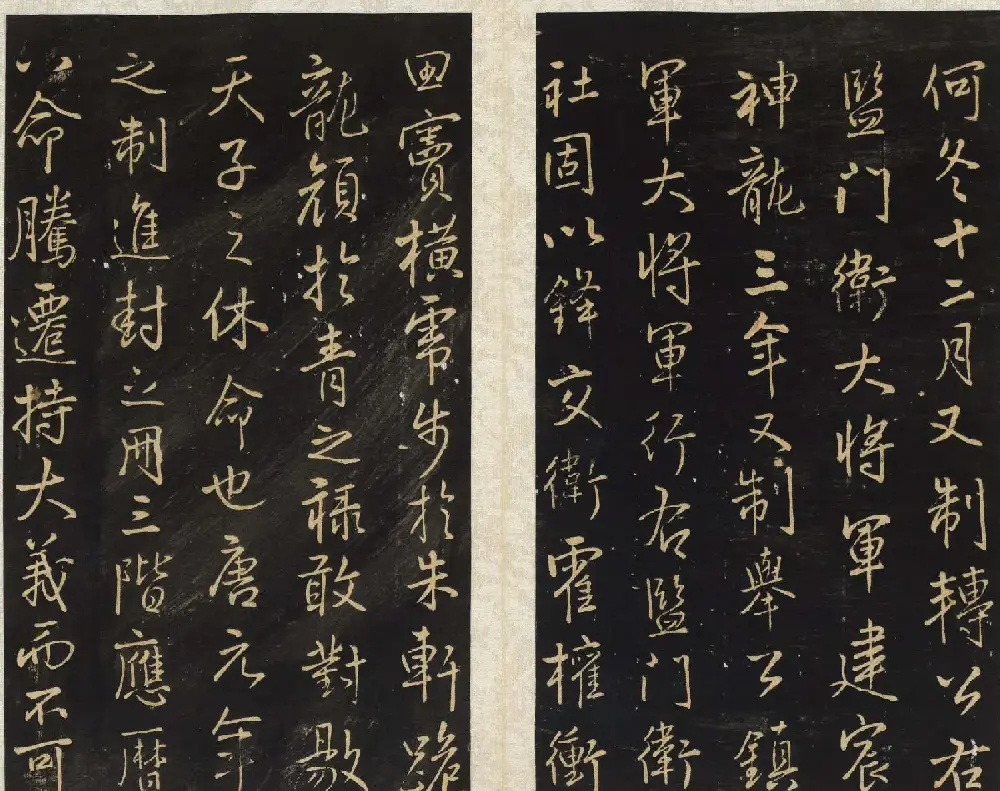 何冬十二月又制轉公右
監門衛大將軍建宸
神龍三年又制舉公鎮
軍大將軍行右監門衛
社固以鋒交衛霍權衝
田竇橫虎步於朱軒跪
龍顏於青之祿敢對敭
天子之休命也唐元年
之制進封之册三階應曆
以命騰遷持大義而不可